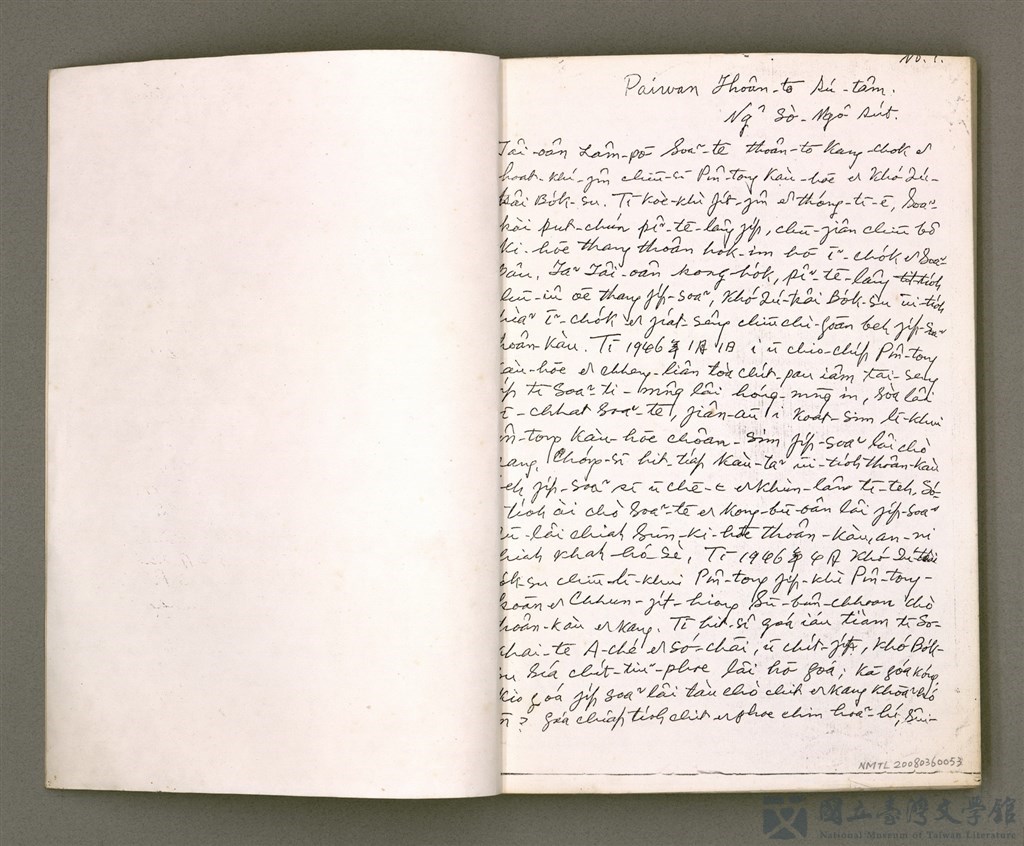 No. 1.
Paiwan Thoân-tō Sú-tâm.
Ngô͘ Sò-Ngô͘ Sút.
Tâi-oân Lâm-pō͘ Soaⁿ-tē thoân-tō Kang-chok ê
hoat-khí-jîn chiū-sī Pîn-tong Kàu-hōe ê Khó͘ Iú-
châi Bo̍k-su. Tī Kòe-khì Ji̍t-jîn ê thóng-tī-ē, Soaⁿ-
nāi put-chún pîⁿ-tē-lâng ji̍p, chū-jiân chiū bô
Ki-hōe thang thoân hok-im hō͘ I-cho̍k ê Soaⁿ-
Tâi-oân kong-ho̍k, pîⁿ-tē-lâng tit-tio̍h
chū-iû oē thang ji̍p-soaⁿ, Khó͘ Iú-châi Bo̍k-su ūi-tio̍h
ê chiū chì-goān beh ji̍p-soaⁿ
thoân-Kàu. Tī 1946 年 1月 1日 i ū chio-chi̍p Pîn-tong
Kàu-hōe ê chheng-liân tòa chi̍t-pau iâm tāi-seng
ji̍p tī Soaⁿ-tī-mn̂g lâi hóng-mn̄g in, sòa lâi
chhat Soaⁿ-tē, jiân-āu i Koat-sim lī-khui
Pîn-tong Kàu-hōe choân-sim ji̍p-soaⁿ lâi chò
Kang. Chóng-sī hit-tia̍p Kàu-tàⁿ ūi-tio̍h thoân-Kàu
beh ji̍p-soaⁿ sī ū chē-chē ê Khùn-lân tī-teh, Só͘-
tio̍h ài chò Soaⁿ-tē ê Kong-bū-oân lâi ji̍p-soaⁿ
lâi chiah Sūn-ki-hōe thoân-Kàu, an-ni
chiah khah hó-sè, Tī 1946 年 4月 Khó͘ Iú-châi
Bo̍k-su chiū lī-khui Pîn-tong ji̍p-khì Pîn-tong-
koān ê Chhun-ji̍t-hiong Sū-bān-chhoan chò
thoân-kàu ê Kang. Tī hit-sî goá iáu tiàm tī So-
khai-tē A-ché ê só͘-chāi, ū chi̍t-ji̍t, Khó͘ Bo̍k-
su Siá chi̍t-tiuⁿ-phoe lâi hō͘ goá; kā goá kóng
Kiò goá ji̍p soaⁿ lâi tàu chò chit ê Kang Khòaⁿ hó
m̄? goá chiap-tio̍h chit ê phoe chin hoaⁿ-hí, Sūi-
NMTL 20080360053
國立臺灣文學館
National Museum of Taiwan Literature